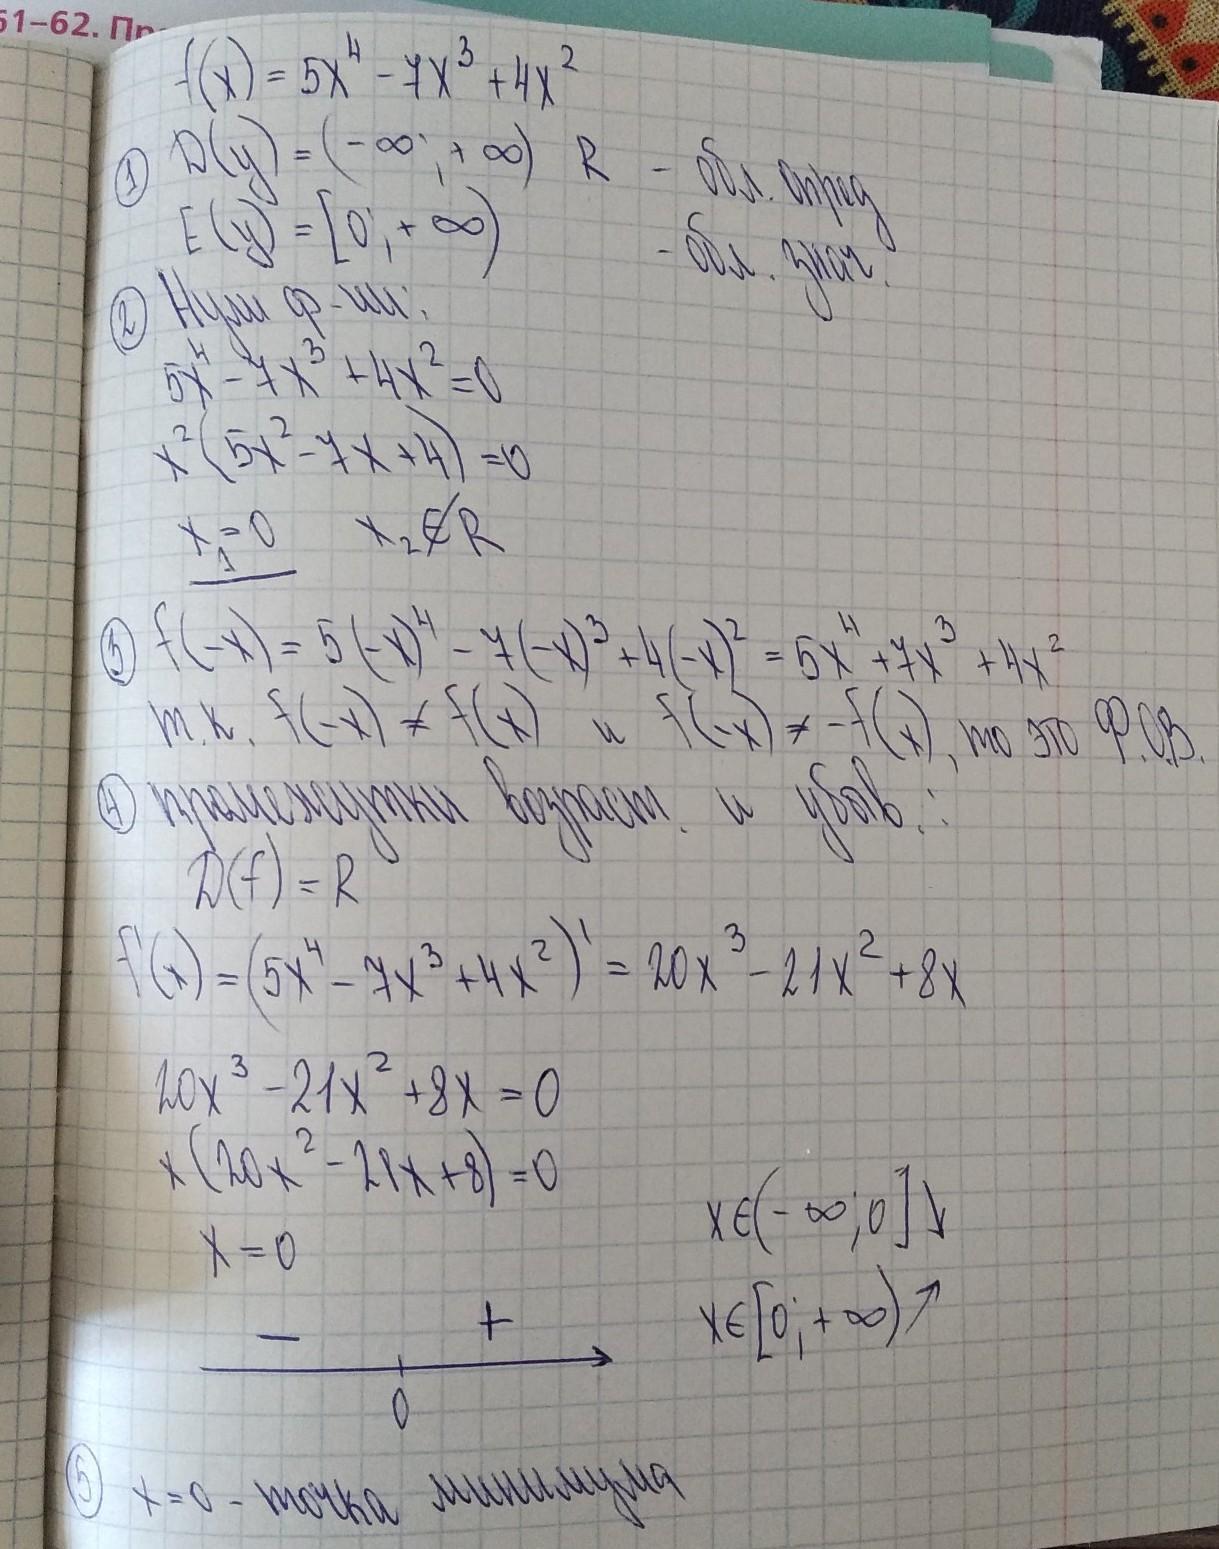 61–62. Пр
f(x) = 5x⁴ - 7x³ + 4x²
① D(y) = (-∞; +∞) R - обл. опред
E(y) = [0; +∞) - обл. знач.
② Нули ф-ии:
5x⁴ - 7x³ + 4x² = 0
x²(5x² - 7x + 4) = 0
x₁ = 0 x₂ ∉ R
③ f(-x) = 5(-x)⁴ - 7(-x)³ + 4(-x)² = 5x⁴ + 7x³ + 4x²
т.к. f(-x) ≠ f(x) и f(-x) ≠ -f(x), то это Ф.О.В.
④ промежутки возраст. и убыв.:
D(f) = R
f'(x) = (5x⁴ - 7x³ + 4x²)' = 20x³ - 21x² + 8x
20x³ - 21x² + 8x = 0
x(20x² - 21x + 8) = 0
x = 0
x∈(-∞; 0] ↓
x∈[0; +∞) ↗
- +
0
⑤ x = 0 - точка минимума